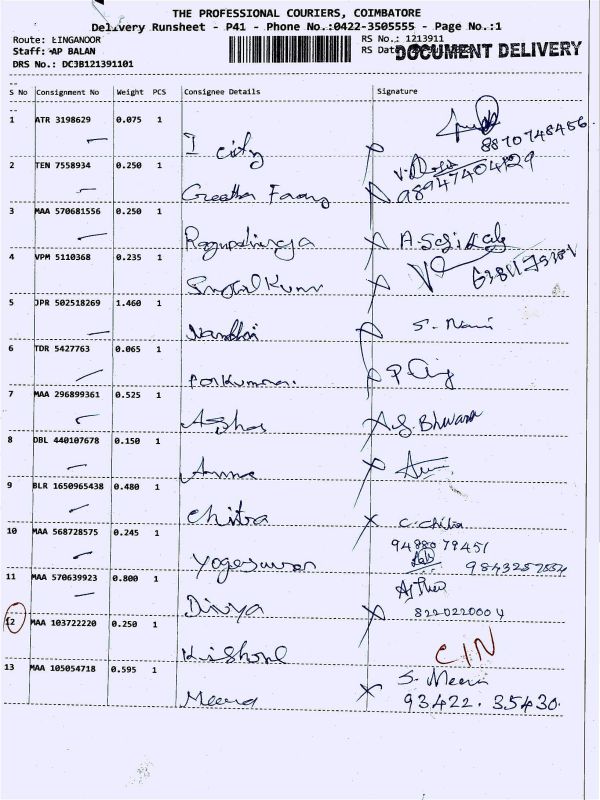 THE PROFESSIONAL COURIERS, COIMBATORE
Delivery Runsheet - P41 - Phone No.:0422-3505555 - Page No.:1
Route: LINGANOOR
RS No.: 1213911
Staff: AP BALAN
RS Date
DOCUMENT DELIVERY
DRS No.: DC3B121391101
S No Consignment No Weight PCS Consignee Details Signature
1 ATR 3198629 0.075 1
I city
8870748456
2 TEN 7558934 0.250 1
9894740429
Geetha
3 MAA 570681556 0.250 1
4 VPM 5110368 0.235 1
5 JPR 502518269 1.460 1
Nandhni S. Nani
6 TDR 5427763 0.065 1
Porkumran.
7 MAA 296899361 0.525 1
Asha
8 DBL 440107678 0.150 1
Amma
9 BLR 1650965438 0.480 1
Chitra C. Chitra
10 MAA 568728575 0.245 1
9488079451
Yogeswaran
11 MAA 570639923 0.800 1
Divya
8220220004
12 MAA 103722220 0.250 1
Kishore CIN
13 MAA 105054718 0.595 1
S. Meena
Meena 93422.35430.